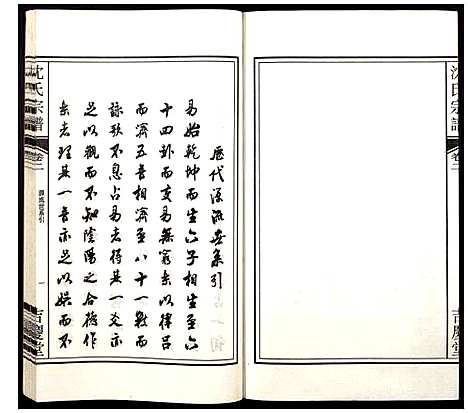 沈氏宗譜
卷二
吉慶堂
歷代源流世系引
易始乾坤而生六子相生至六
十四卦而交易無窮樂以律呂
而濟五音相濟至八十一數而
詠歌不息占易者得其一爻亦
足以觀而不知陰陽之合撰作
樂者理其一音亦足以娛而不
沈氏宗譜
卷二
源流世系引
一
吉慶堂